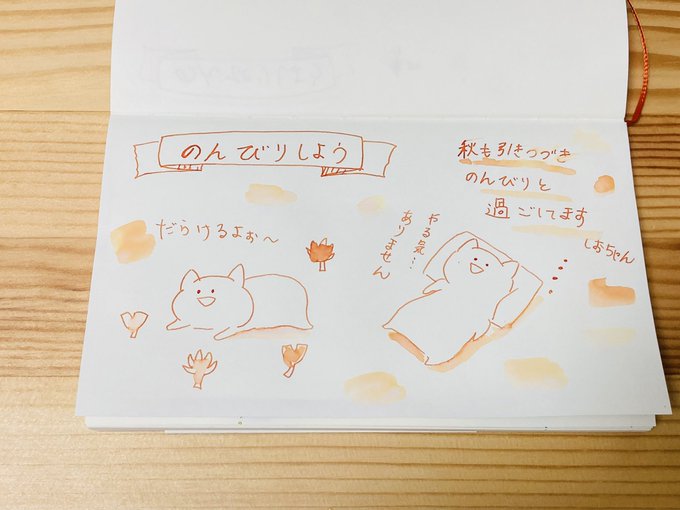 のんびりしよう
秋も引きつづき
のんびりと
過ごしてます
しおちゃん
だらけるよぉ〜
やる気…
ありません